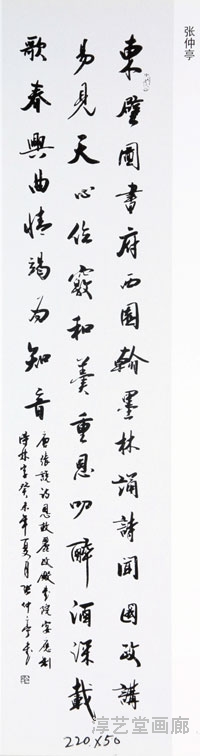 张仲亭
東壁圖書府西園翰墨林誦詩聞國政講
易見天心位竊和羹重恩叨醉酒深載
歌春興曲情竭為知音
唐張說詩恩敕麗政殿書院宴應制
得林字癸未年夏月張仲亭書
220×50
淳艺堂画廊